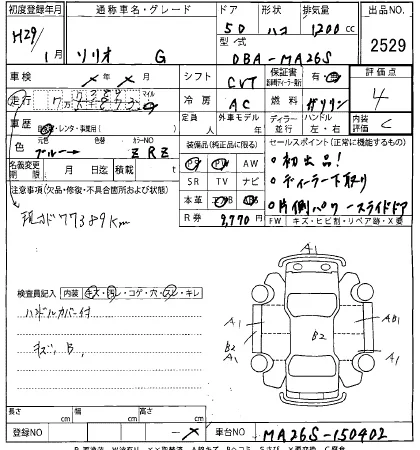 初度登録年月 通称車名・グレード ドア 形状 排気量 出品NO.
H29/1月 ソリオ G 5D ハコ 1200cc 2529
型式 DBA-MA26S
車検 × 年 × 月 シフト CVT 保証書 有・無 評価点 4
走行 7万 マイル 冷房 AC 燃料 ガソリン
車歴 自家・レンタ・事業用( ) 定員 人 外車モデル 年 ディーラー 並行 ハンドル 左・右 内装 C
色 元色 ブルー → 色替 カラーNO ZRZ
装備品(純正品に限る) セールスポイント(正常に機能するもの)
名義変更期限 月 日迄 積載 t
PS PW AW
SR TV ナビ
本革 エアB ABS
R券 9,770円
・初出品!
・ディーラー下取り
・片側パワースライドドア
FW キズ・ヒビ割・リペア跡・X
注意事項(欠品・修復・不具合箇所および状態)
現メーター77389km
検査員記入 内装 キズ・汚レ・コゲ・穴・スレ・キレ
ハンドルカバー付
キズ、B、
A1
A1 AB1
B2
B2
A1 A1
A1
長さ cm 幅 cm 高さ cm
登録NO - × 車台NO MA26S-150402